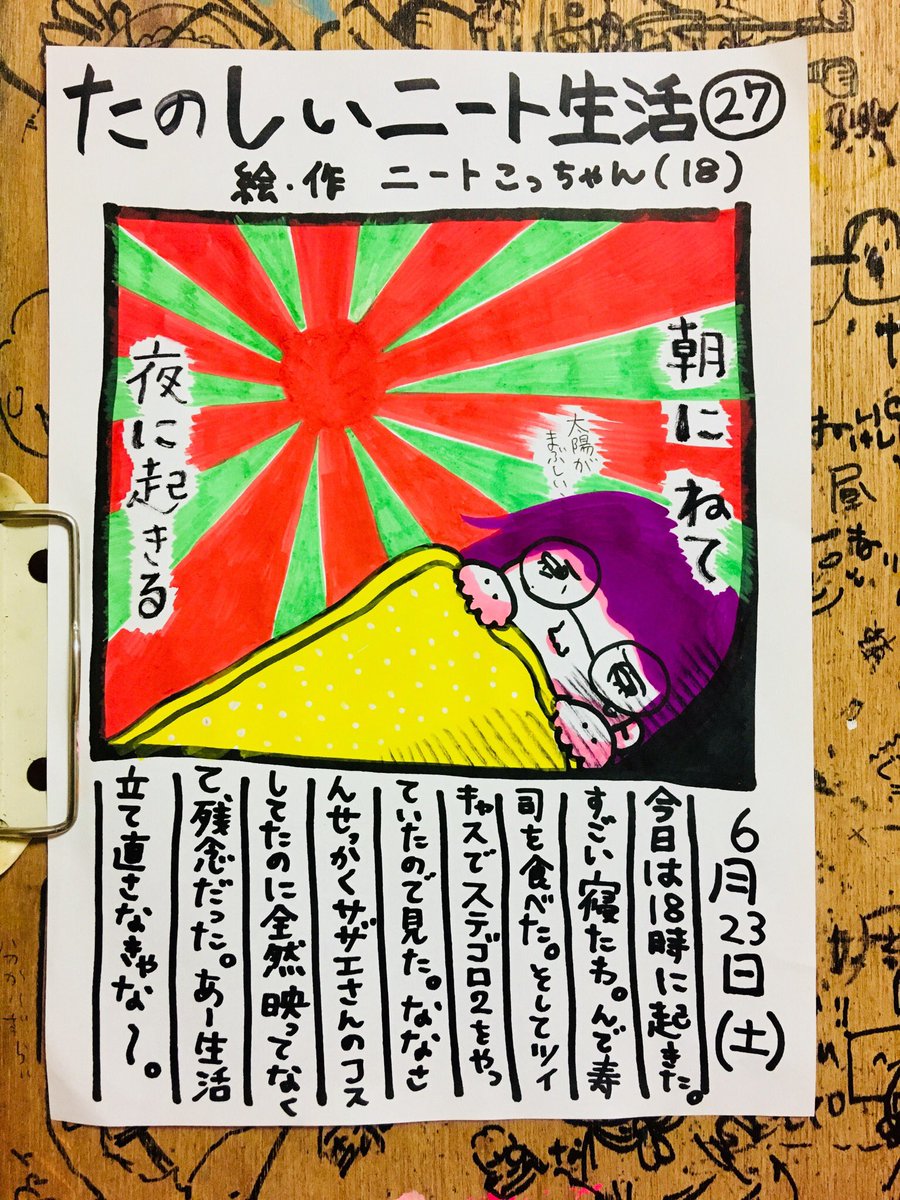 たのしいニート生活㉗
絵・作 ニートこっちゃん(18)
朝にねて
太陽が
まぶしい、
夜に起きる
6月23日(土)
今日は18時に起きた。
すごい寝たわ。んで寿
司を食べた。そしてツイ
キャスでステゴロ2をやっ
ていたので見た。ななさ
んせっかくサザエさんのコス
してたのに全然映ってなく
て、残念だった。あー生活
立て直さなきゃな〜。
昼